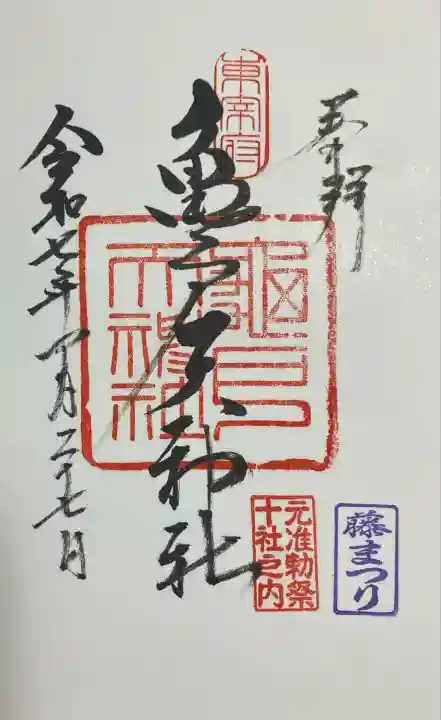 奉拝
東宰府
亀戸天神社
亀戸天神社
令和七年四月二十七日
元准勅祭
十社之内
藤まつり